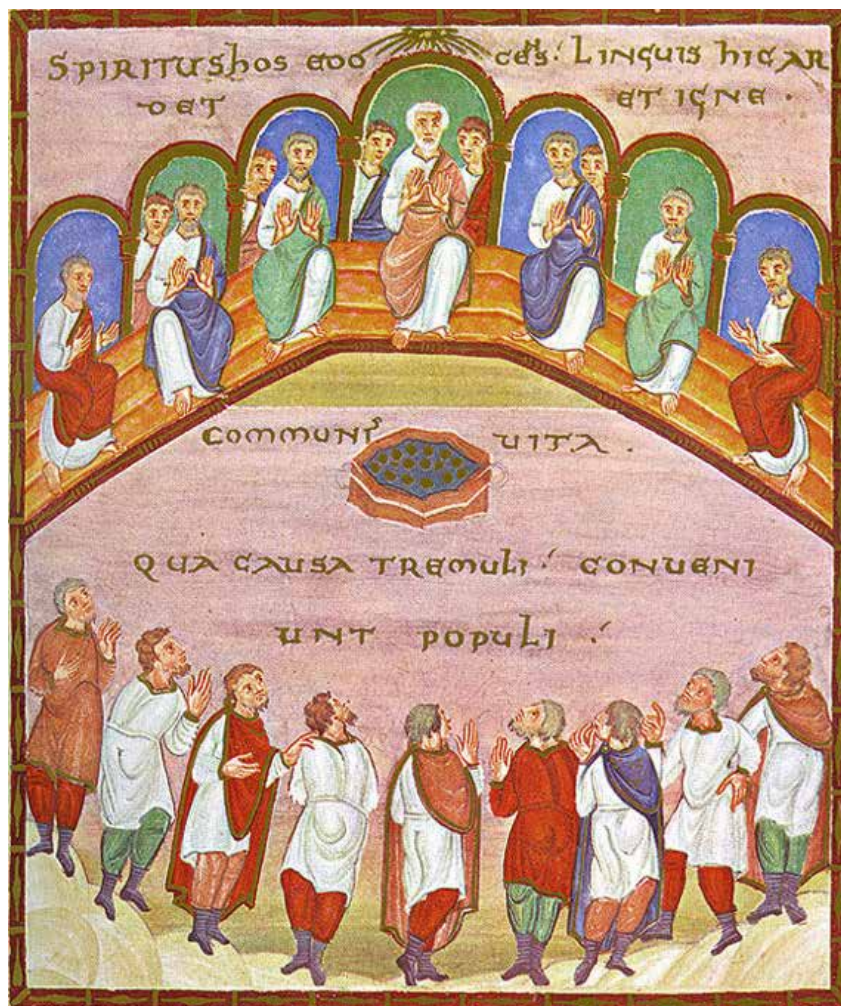 SPIRITUS hOS EDO CENS. LINGUIS HIC AR
DET ET IGNE .
COMMUNIS UITA .
QUA CAUSA TREMULI . CONUENI
UNT POPULI .